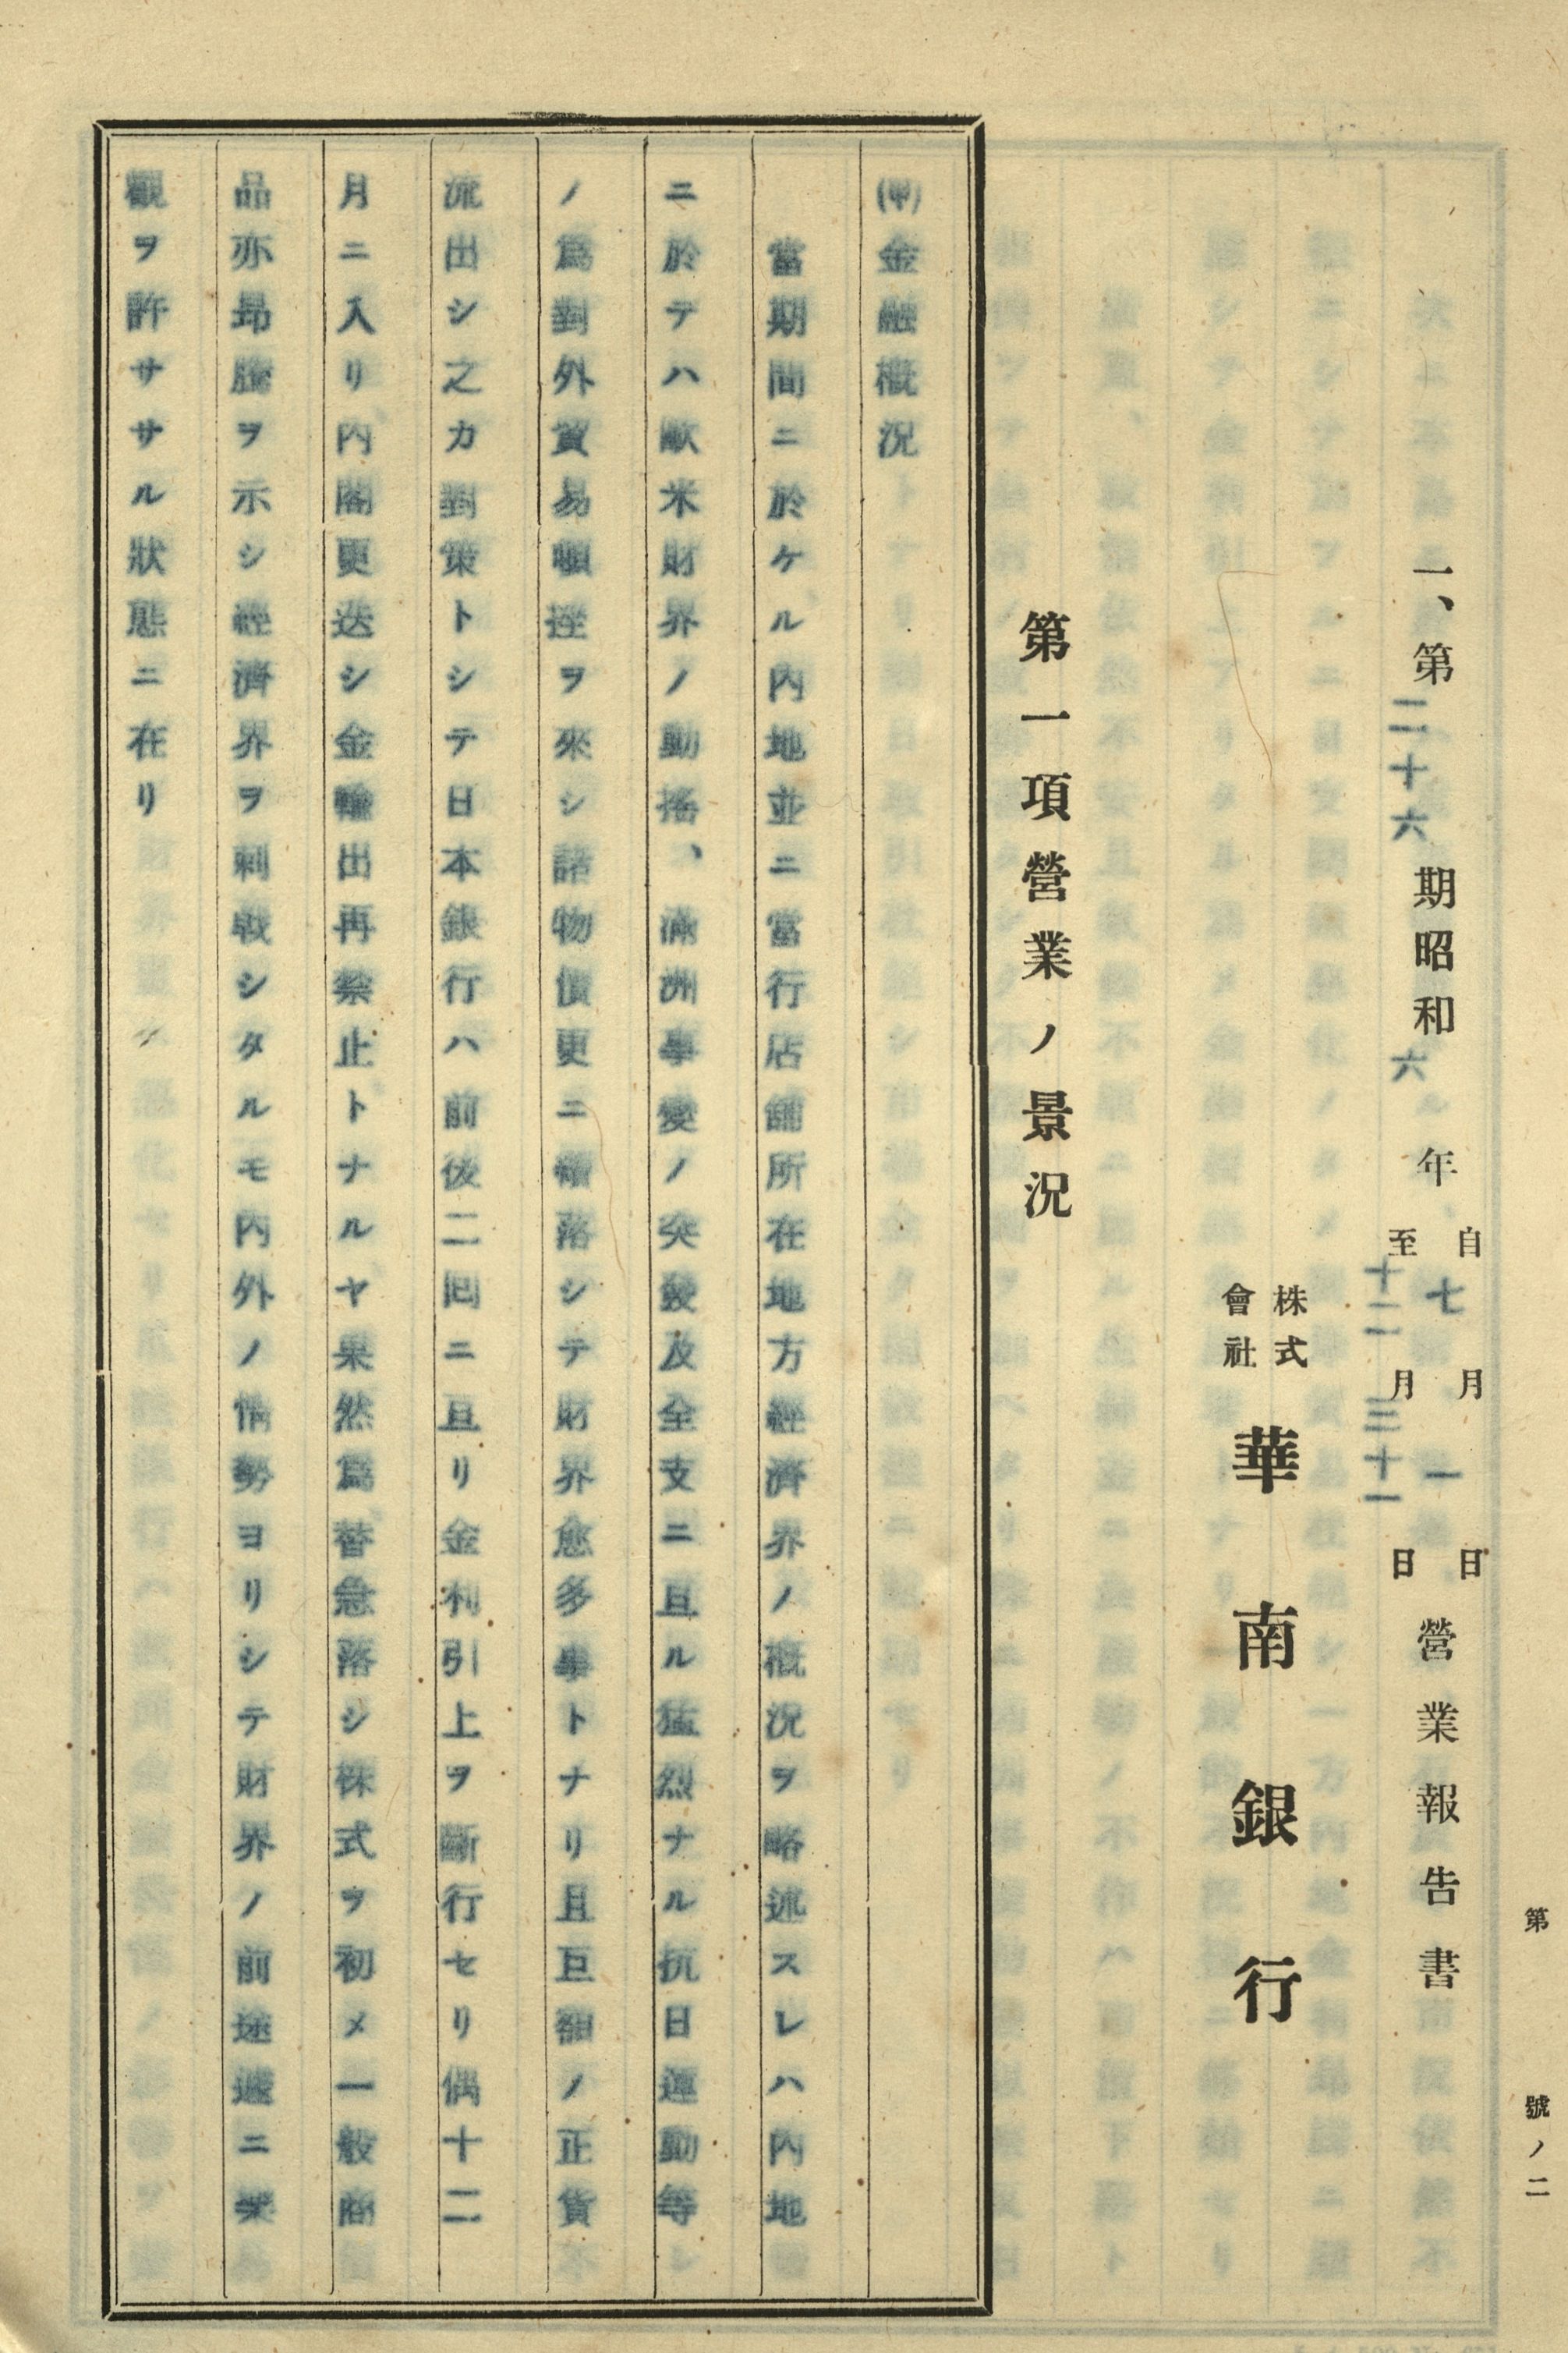 第　號ノ二
一、第二十六期昭和六年自七月一日至十二月三十一日營業報告書
株式會社華南銀行
第一項營業ノ景況
(甲)金融概況
當期間ニ於ケル內地並ニ當行店舖所在地方經濟界ノ概況ヲ略述スレハ內地
ニ於テハ歐米財界ノ動搖、滿洲事變ノ突發及全支ニ亘ル猛烈ナル抗日運動等
ノ爲對外貿易頓挫ヲ來シ諸物價更ニ慘落シテ財界愈多事トナリ且巨額ノ正貨
流出シ之カ對策トシテ日本銀行ハ前後二囘ニ亘リ金利引上ヲ斷行セリ偶十二
月ニ入リ內閣更迭シ金輸出再禁止トナルヤ果然爲替急落シ株式ヲ初メ一般商
品亦昻騰ヲ示シ經濟界ヲ刺戟シタルモ內外ノ情勢ヨリシテ財界ノ前途遽ニ樂
觀ヲ許ササル狀態ニ在リ